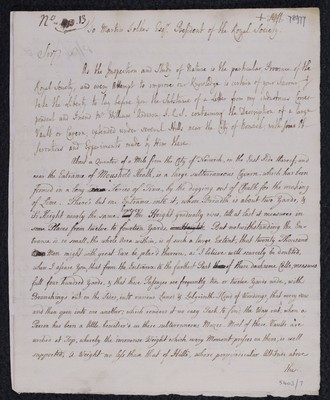 No. 13
+ Mss.
To Martin Folkes Esqr President of the Royal Society
Sir,
As the Inspection and Study of Nature is the particular Province of the
Royal Society, and every attempt to improve our Knowledge is certain of your Favour, I
take the Liberty to lay before you the Substance of a Letter from my industrious Corres-
pondent and Friend Mr William Arderon F.R.S. containing the Description of a large
Vault or Cavern, explored under several Hills near the City of Norwich, with some Ob-
servations and Experiments made by Him there.
About a Quarter of a Mile from the City of Norwich, on the East Side thereof, and
near the Entrance of Moushold Heath, is a large subterraneous Cavern, which has been
formed in a long Series of Time, by the digging out of Chalk for the making
of Lime. There's but one Entrance into it, whose Breadth is about two Yards, &
its Height nearly the same, but the Height gradually rises, till at last it measures in
some Places from twelve to fourteen Yards. But notwithstanding the En-
trance is so small, the whole Area within, is of such a large Extent, that twenty Thousand
Men might with great Ease be placed therein, as I believe will scarcely be doubted,
when I assure You, that from the Entrance to the farthest Part of these darksome Cells, measures
full four hundred Yards, & that these Passages are frequently ten or twelve Yards wide, with
Branchings out on the Sides, into various Lanes & Labyrinth Kind of Windings, that every now
and then open into one another; which renders it no easy Task to find the Way out, when a
Person has been a little bewilder'd in these subterraneous Mazes. Most of these Vaults are
arched at Top, whereby the immense Weight which every Moment presses on them, is well
supported; a Weight no less than that of Hills, whose perpendicular Altitude above